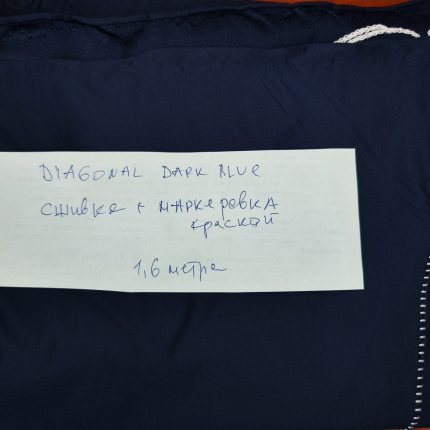 DIAGONAL DARK BLUE
сшивка + маркеровка
краской
1,6 метра